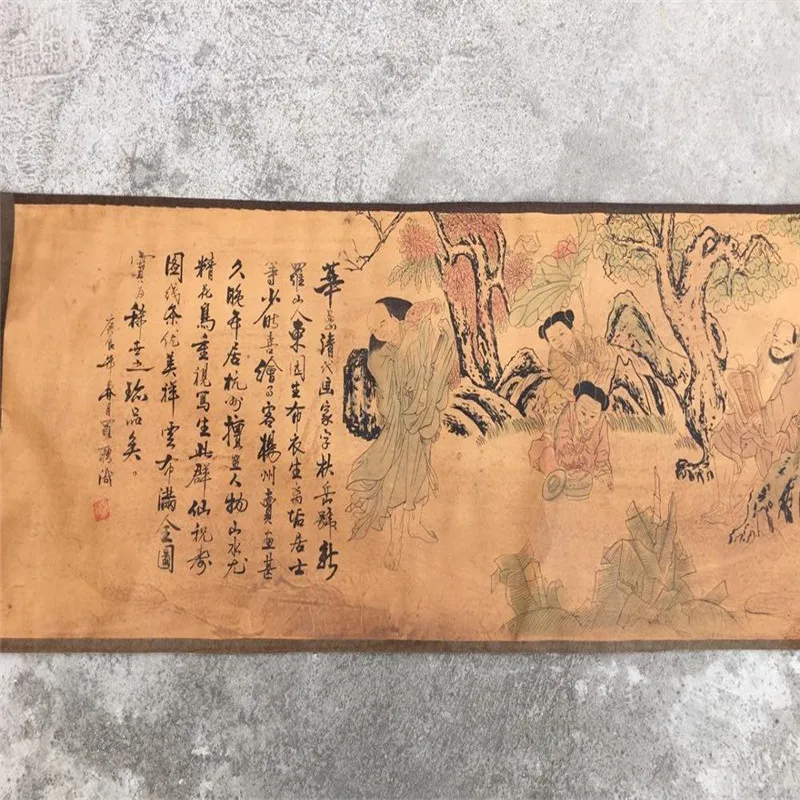 華喦清代画家字秋岳號新
羅山人東园生布衣生离垢居士
等少时喜繪马客揚州賣画甚
久晚年居杭州擅画人物山水尤
精花鳥重視写生此群仙祝寿
图线条优美祥雲布滿全図
實为稀世之珍品矣。
庚辰年春月羅聘識